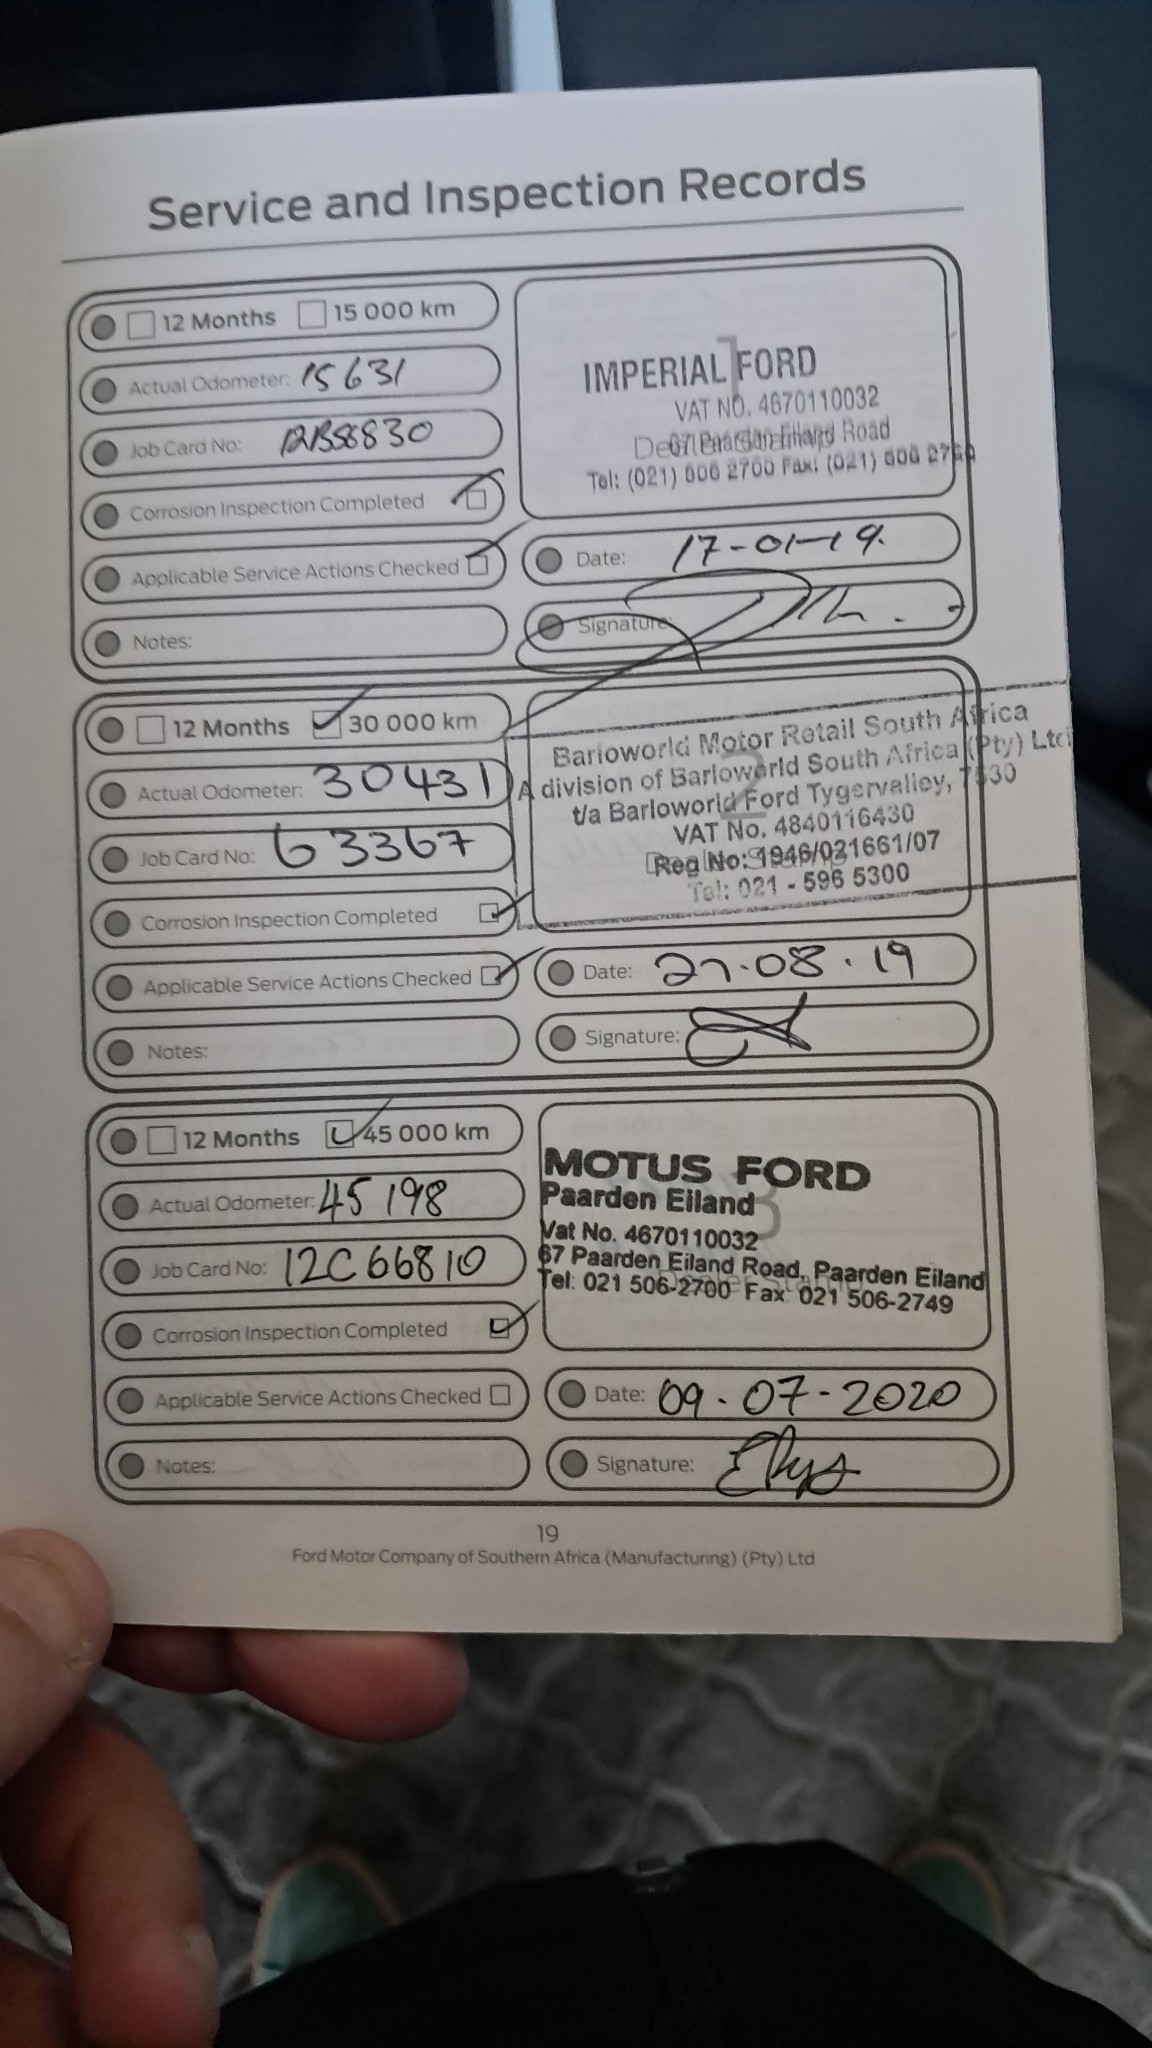 Service and Inspection Records
12 Months 15 000 km
Actual Odometer: 15631
Job Card No:
Corrosion Inspection Completed
Applicable Service Actions Checked
Notes:
1
IMPERIAL FORD
VAT NO. 4670110032
67 Paarden Eiland Road
Tel: (021) 506 2700 Fax: (021) 506
Date: 17-01-19.
Signature:
12 Months 30 000 km
Actual Odometer: 30431
Job Card No: 63367
Corrosion Inspection Completed
Applicable Service Actions Checked
Notes:
2
Barloworld Motor Retail South Africa
A division of Barloworld South Africa (Pty) Ltd
t/a Barloworld Ford Tygervalley, 7530
VAT No. 4840116430
Reg No: 1946/021661/07
Tel: 021 - 596 5300
Date: 27.08.19
Signature:
12 Months 45 000 km
Actual Odometer: 45 198
Job Card No: 12C66810
Corrosion Inspection Completed
Applicable Service Actions Checked
Notes:
3
MOTUS FORD
Paarden Eiland
Vat No. 4670110032
67 Paarden Eiland Road, Paarden Eiland
Tel: 021 506-2700 Fax 021 506-2749
Dealer Stamp
Date: 09-07-2020
Signature:
19
Ford Motor Company of Southern Africa (Manufacturing) (Pty) Ltd